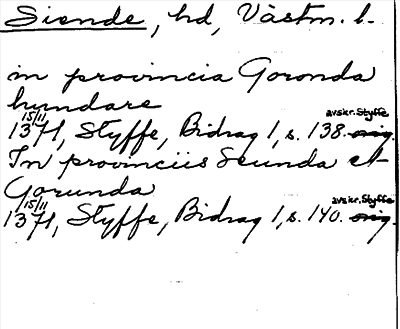 Siende, hd, Västm. l.
in provincia Goronda
hundare
avskr. Styffe
15/11
1371, Styffe, Bidrag 1, s. 138. orig.
In provinciis Seunda et
Gorunda
avskr. Styffe
15/11
1371, Styffe, Bidrag 1, s. 140. orig.